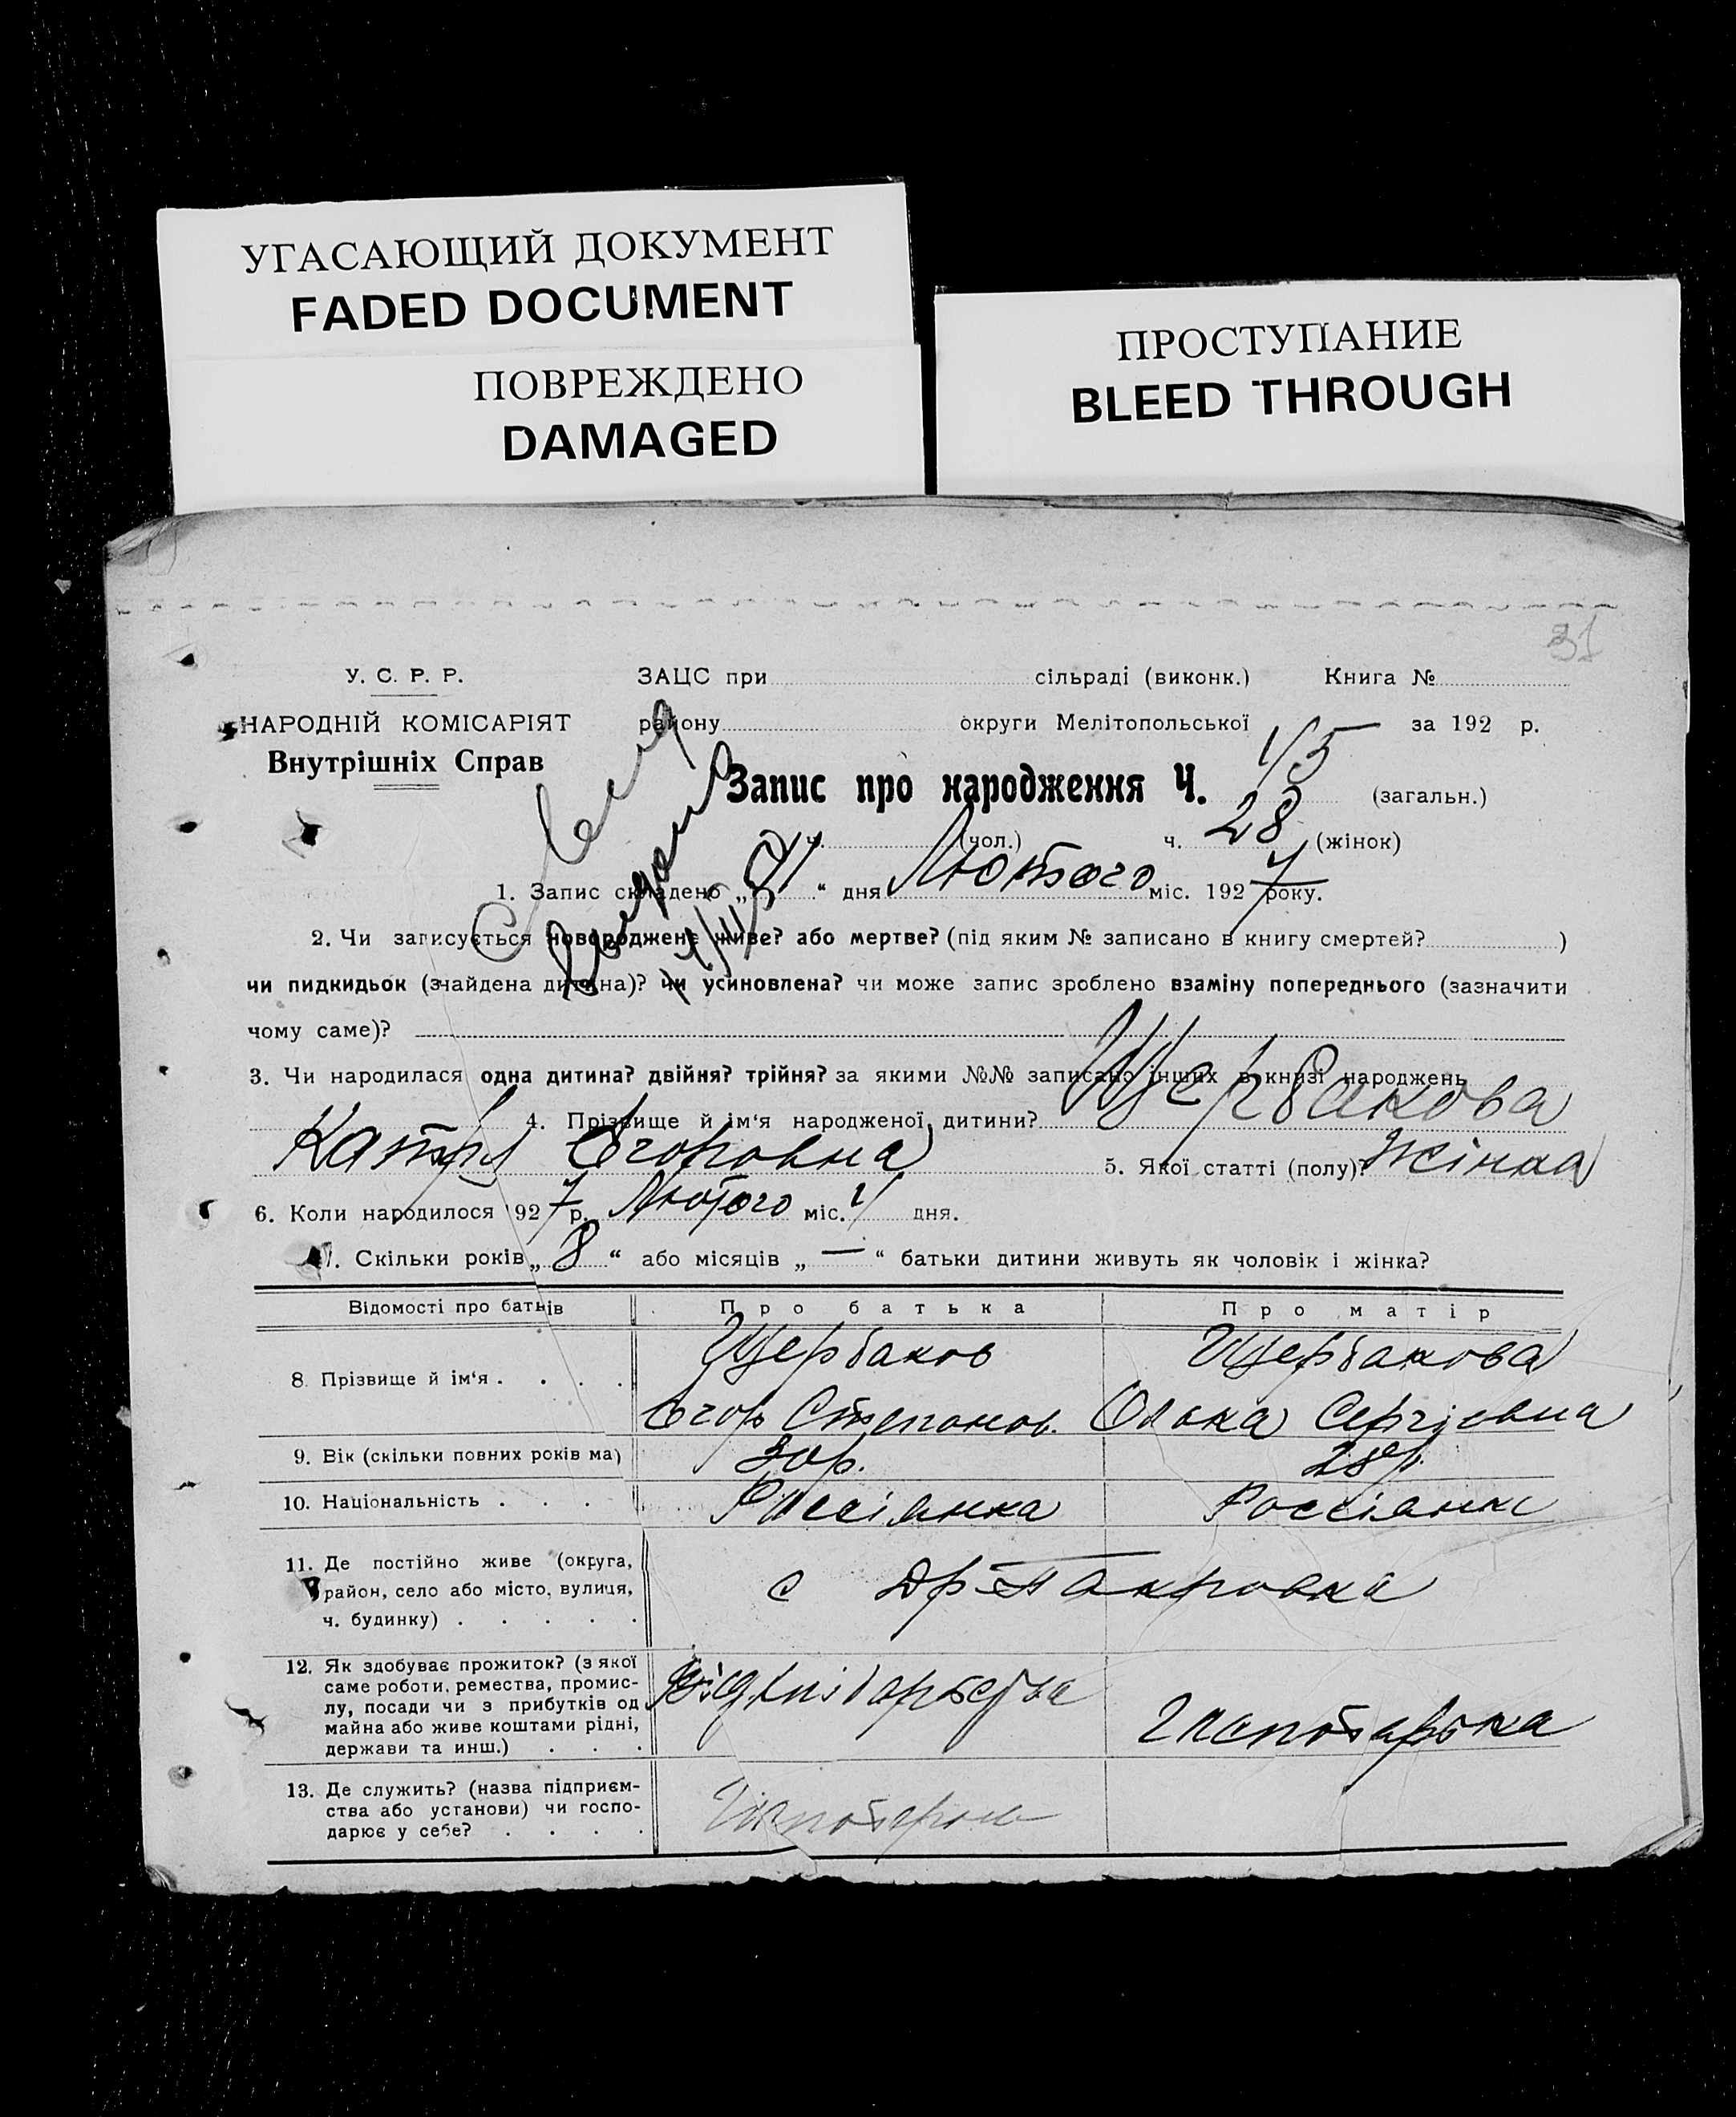 УГАСАЮЩИЙ ДОКУМЕНТ
FADED DOCUMENT
ПОВРЕЖДЕНО
DAMAGED
ПРОСТУПАНИЕ
BLEED THROUGH
31
У. С. Р. Р.
НАРОДНІЙ КОМІСАРІЯТ
Внутрішніх Справ
ЗАЦС при сільраді (виконк.) Книга №
району округи Мелітопольської за 192 р.
Запис про народження Ч. (загальн.)
ч. (чол.) ч. 28 (жінок)
1. Запис складено „ “ дня Лютого міс. 1927 року.
2. Чи записується новороджене живе? або мертве? (під яким № записано в книгу смертей? )
чи пидкидьок (знайдена дитина)? чи усиновлена? чи може запис зроблено взаміну попереднього (зазначити
чому саме)?
3. Чи народилася одна дитина? двійня? трійня? за якими №№ записано інших в книзі народжень
4. Прізвище й ім‘я народженої дитини? Щербакова
Катря Егоровна 5. Якої статті (полу)? Жінка
6. Коли народилося 1927 р. Лютого міс. дня.
7. Скільки років „ 8 “ або місяців „ — “ батьки дитини живуть як чоловік і жінка?
Відомості про батьків Про батька Про матір
8. Прізвище й ім‘я . . . . Щербаков Щербакова
Егор Степанов. Олена Сергіевна
9. Вік (скільки повних років ма) 30р. 28р.
10. Національність . . . Россіянка Россіянка
11. Де постійно живе (округа,
район, село або місто, вулиця,
ч. будинку) . . . . .
с
12. Як здобуває прожиток? (з якої
саме роботи, ремества, промис-
лу, посади чи з прибутків од
майна або живе коштами рідні,
держави та инш.) . . .
13. Де служить? (назва підприєм-
ства або установи) чи госпо-
дарює у себе? . . . .